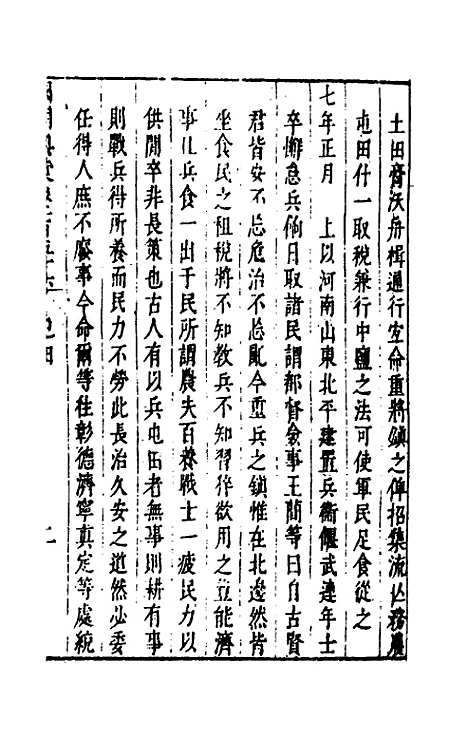 土田膏沃舟楫通行宜命重將鎮之俾招集流亾務農
屯田什一取稅兼行中鹽之法可使軍民足食從之
七年正月　上以河南山東北平建置兵衛偃武連年士
卒懈怠兵餉日取諸民謂都督僉事王簡等曰自古賢
君皆安不忘危治不忘亂今重兵之鎮惟在北邊然皆
坐食民之租稅將不知教兵不知習猝欲用之豈能濟
事且兵食一出于民所謂農夫百養戰士一疲民力以
供閒卒非長策也古人有以兵屯田者無事則耕有事
則戰兵得所養而民力不勞此長治久安之道然必委
任得人庶不廢事今命爾等往彰德濟寧真定等處統